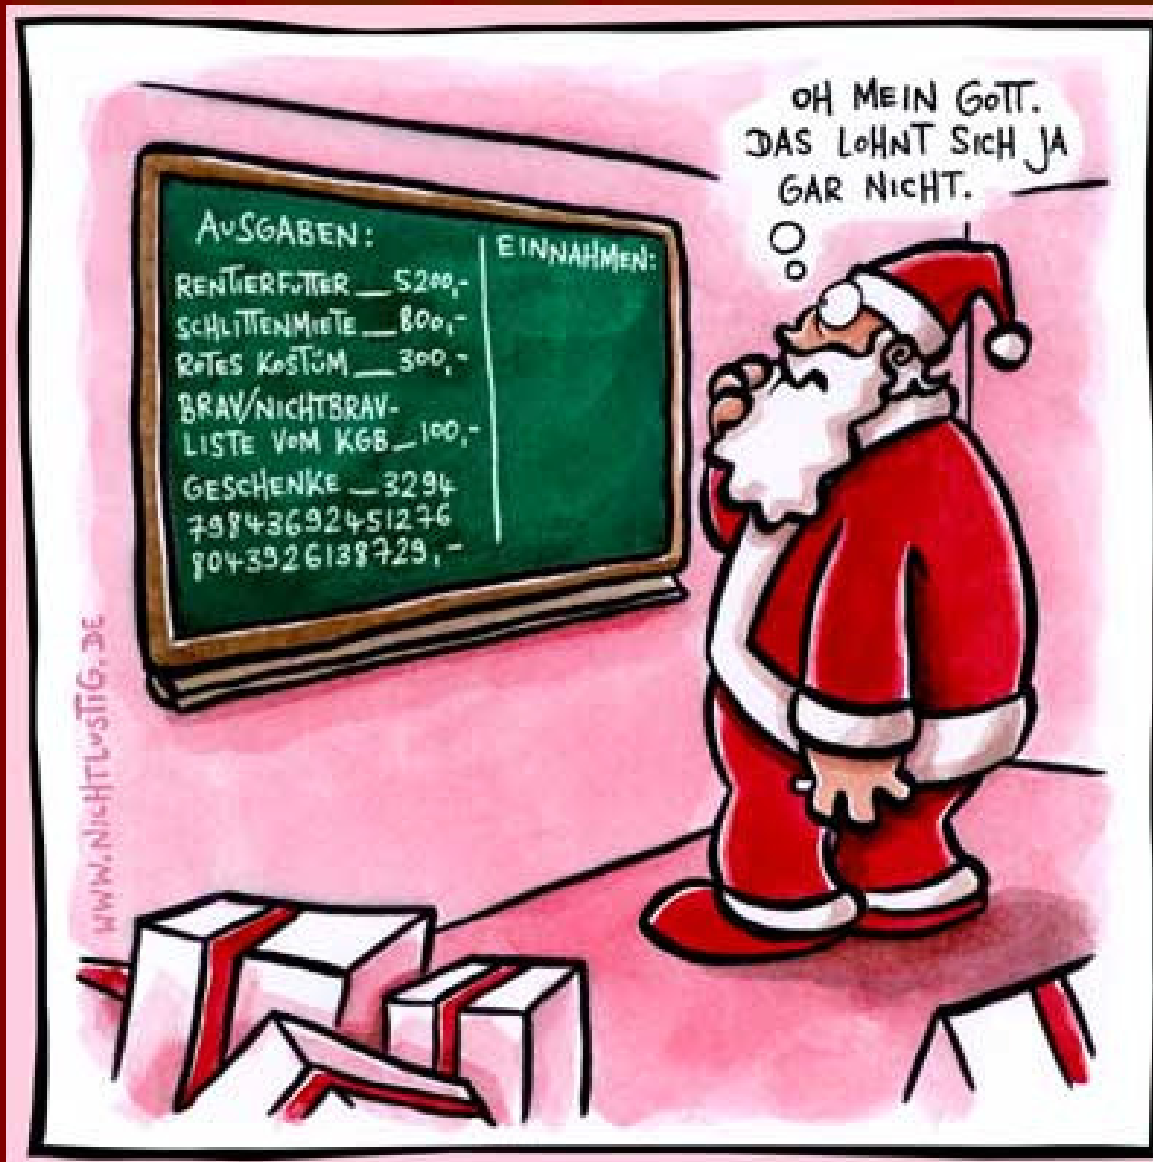 OH MEIN GOTT.
DAS LOHNT SICH JA
GAR NICHT.
AUSGABEN:
RENTIERFUTTER __ 5200,-
SCHLITTENMIETE __ 800,-
ROTES KOSTÜM __ 300,-
BRAV/NICHTBRAV-
LISTE VOM KGB _ 100,-
GESCHENKE __ 3294
79843692451276
8043926138729,-
EINNAHMEN:
WWW.NICHTLUSTIG.DE